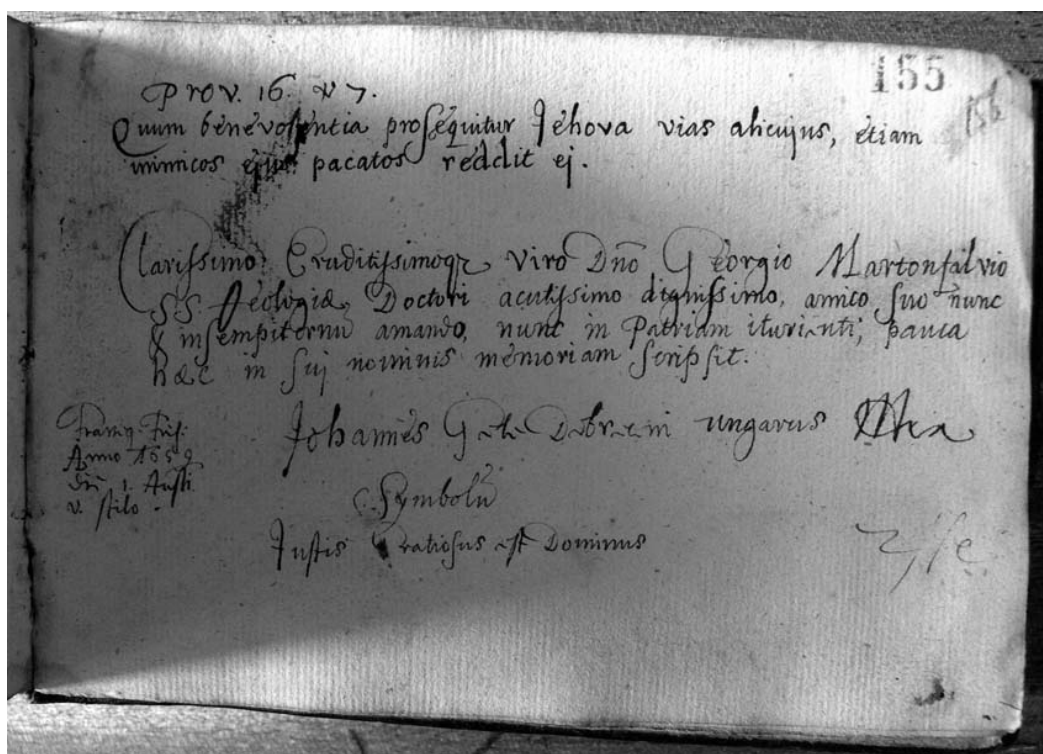 155
156
Prov. 16. v 7.
Quum benevolentia prosequitur Jehova vias alicujus, etiam
inimicos ejus pacatos reddit ei.
Clarissimo Eruditissimoqz viro Dnō Georgio Martonfalvio
SS Theologiæ Doctori acutissimo dignissimo, amico suo nunc
& in sempiternū amando, nunc in Patriam iturienti, pauca
hæc in sui nominis memoriam scripsit.
Johannes Debrecini ungarus
Symbolū
Justis Gratiosus est Dominus
Franeq. Fris:
Anno 1659
die 1. Austi
v. stilo.